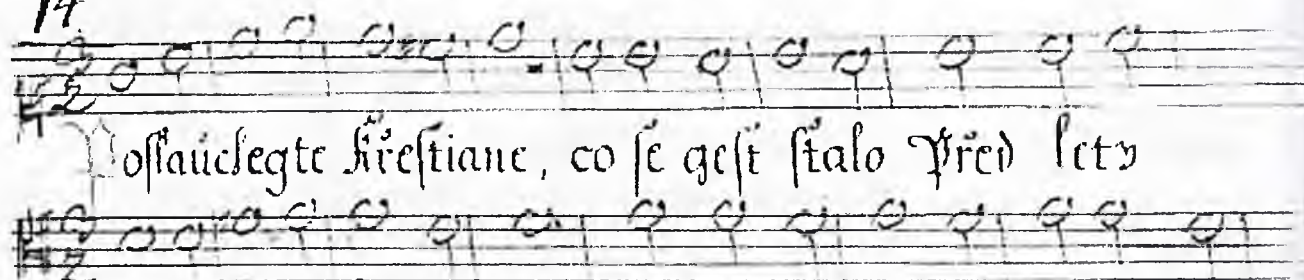 14
Posslauchegte Křestiane, co se gest stalo Před lety